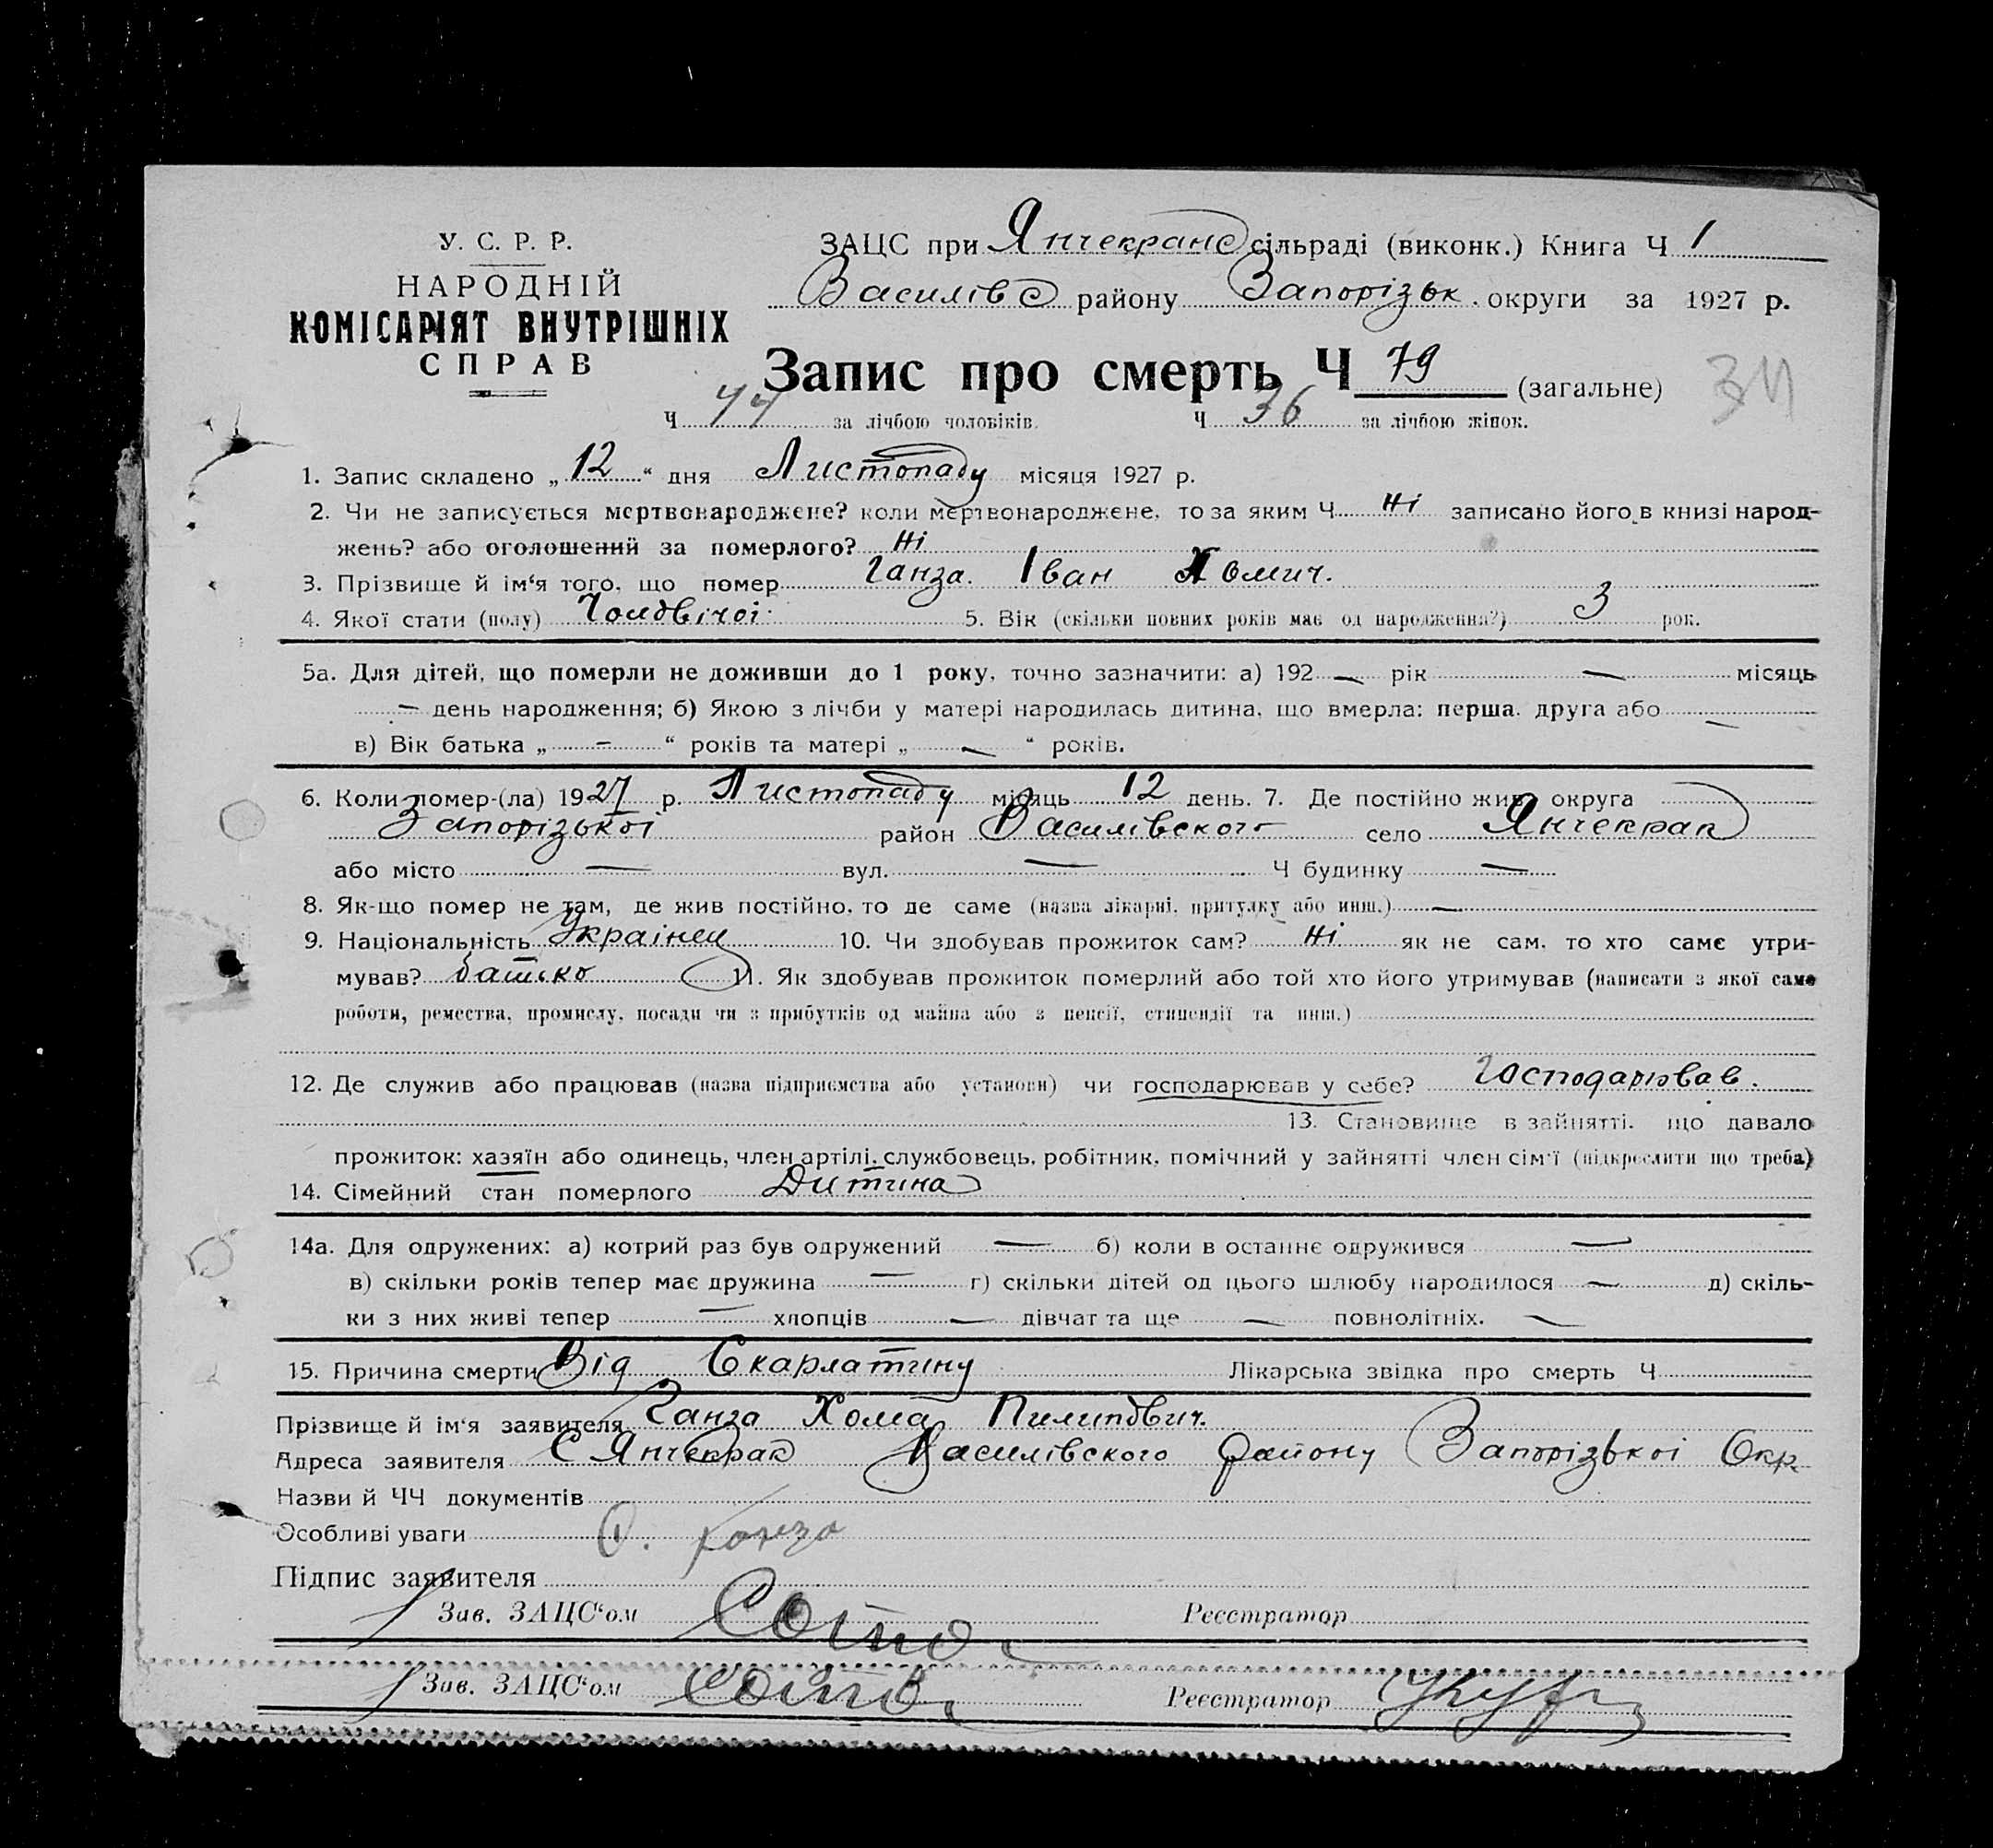 У. С. Р. Р.
НАРОДНІЙ
КОМІСАРІЯТ ВНУТРІШНІХ
СПРАВ
ЗАЦС при Янчекранс сільраді (виконк.) Книга Ч 1
Василівс району Запорізьк. округи за 1927 р.
Запис про смерть Ч 79 (загальне)
Ч 44 за лічбою чоловіків. Ч 36 за лічбою жінок.
1. Запис складено „12“ дня Листопаду місяця 1927 р.
2. Чи не записується мертвонароджене? коли мертвонароджене, то за яким Ч Ні записано його в книзі народ-
жень? або оголошений за померлого? Ні
3. Прізвище й ім‘я того, що помер Ганза. Іван Хомич.
4. Якої стати (полу) Чоловічоі 5. Вік (скільки повних років має од народження?) 3 рок.
5а. Для дітей, що померли не доживши до 1 року, точно зазначити: а) 192 — рік — місяць
— день народження; б) Якою з лічби у матері народилась дитина, що вмерла: перша, друга або —
в) Вік батька „ — “ років та матері „ — “ років.
6. Коли помер-(ла) 1927 р. Листопаду місяць 12 день. 7. Де постійно жив: округа
Запорізькоі район Василівского село Янчекрак
або місто — вул. — Ч будинку —
8. Як-що помер не там, де жив постійно, то де саме (назва лікарні, притулку або инш.) —
9. Національність Украінец 10. Чи здобував прожиток сам? Ні як не сам, то хто саме утри-
мував? батько 11. Як здобував прожиток померлий або той хто його утримував (написати з якої саме
роботи, ремества, промислу, посади чи з прибутків од майна або з пенсії, стипендії та инш.)
12. Де служив або працював (назва підприємства або установи) чи господарював у себе? Господарював.
13. Становище в зайнятті, що давало
прожиток: хазяїн або одинець, член артілі, службовець, робітник, помічний у зайнятті член сім‘ї (підкреслити що треба)
14. Сімейний стан померлого Дитина
14а. Для одружених: а) котрий раз був одружений — б) коли в останнє одружився —
в) скільки років тепер має дружина — г) скільки дітей од цього шлюбу народилося — д) скіль-
ки з них живі тепер — хлопців — дівчат та ще — повнолітніх. —
15. Причина смерти Від Скарлатину Лікарська звідка про смерть Ч
Прізвище й ім‘я заявителя Ганза Хома Пилипович.
Адреса заявителя С Янчекрак Василівского району Запорізькоі Окр.
Назви й ЧЧ документів
Особливі уваги
Підпис заявителя
Зав. ЗАЦС‘ом Реєстратор
Зав. ЗАЦС‘ом Реєстратор